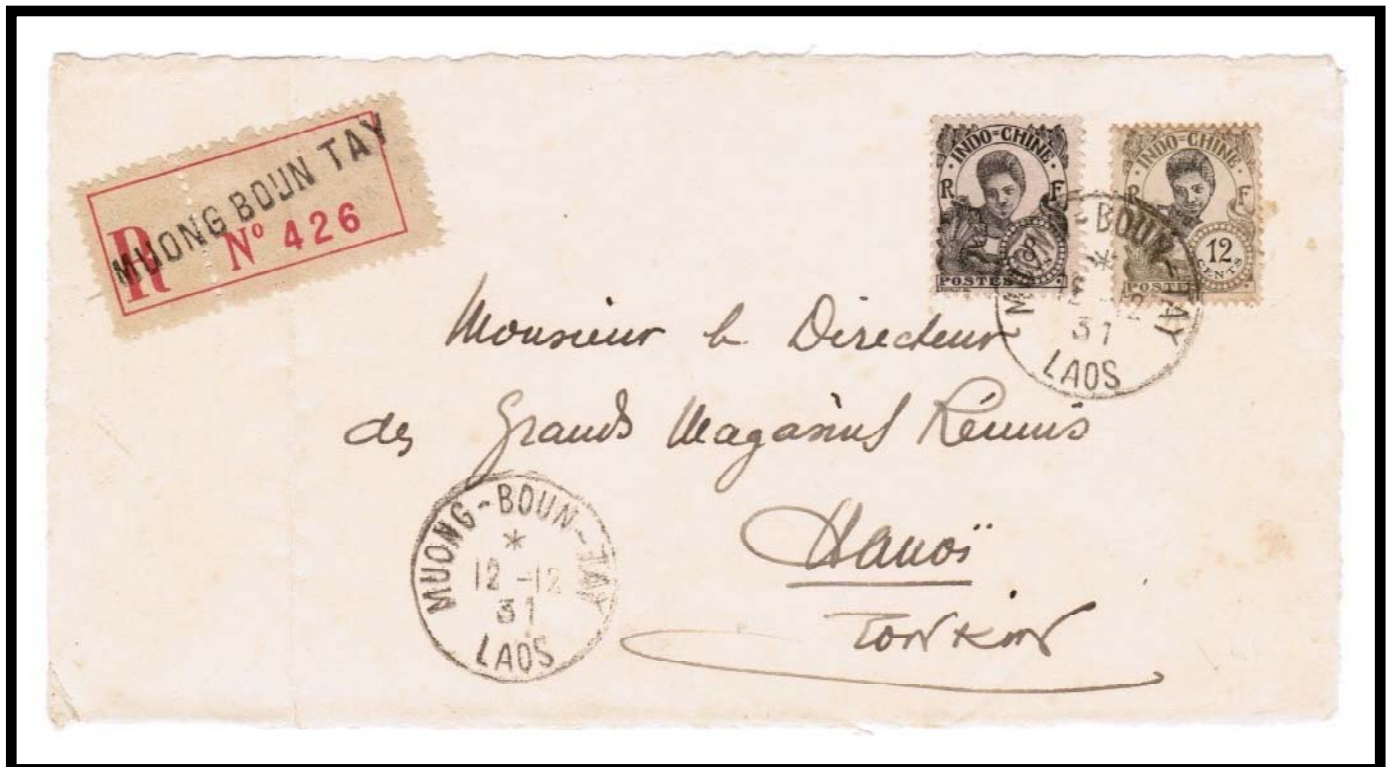 MUONG BOUN TAY
R N° 426
INDO=CHINE
R F
POSTES
INDO=CHINE
R F
12
CENTS
POSTES
MUONG-BOUN-TAY
*
12-12
31
LAOS
Monsieur le Directeur
des Grands Magasins Réunis
Hanoï
Tonkin
MUONG-BOUN-TAY
*
12-12
31
LAOS